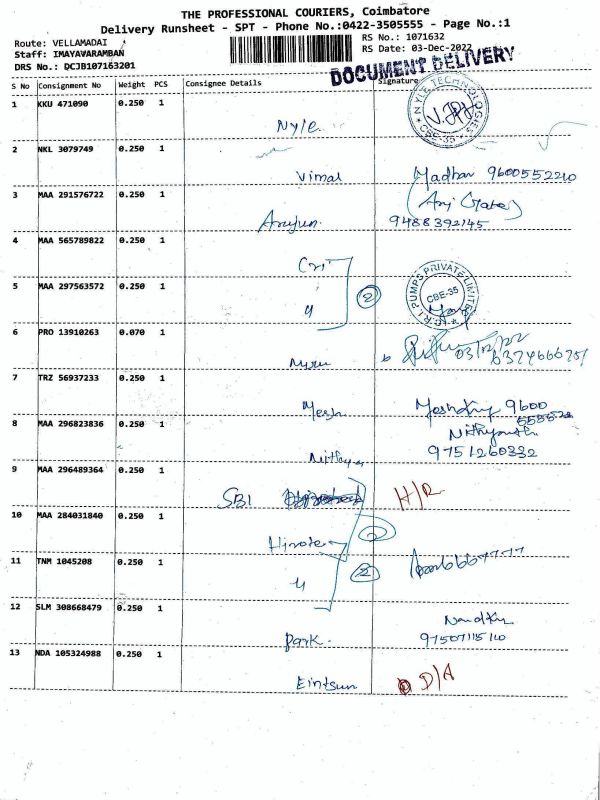 THE PROFESSIONAL COURIERS, Coimbatore
Delivery Runsheet - SPT - Phone No.:0422-3505555 - Page No.:1
Route: VELLAMADAI
Staff: IMAYAVARAMBAN
DRS No.: DCJB107163201
RS No.: 1071632
RS Date: 03-Dec-2022
DOCUMENT DELIVERY
S No Consignment No Weight PCS Consignee Details Signature
1 KKU 471090 0.250 1
Nyle
NYLE TECHNOLOGIES CBE-35
2 NKL 3079749 0.250 1
Vimal Madhan 9600552210
3 MAA 291576722 0.250 1
Arujun 9488392145
4 MAA 565789822 0.250 1
Cri
5 MAA 297563572 0.250 1
4 2
C.R.I PUMPS PRIVATE LIMITED CBE-35
6 PRO 13910263 0.070 1
03/12/22
7 TRZ 56937233 0.250 1
Mesh 9600
8 MAA 296823836 0.250 1
Nithya 9751260332
9 MAA 296489364 0.250 1
SBI H/R
10 MAA 284031840 0.250 1
11 TNM 1045208 0.250 1
4 2
12 SLM 308668479 0.250 1
Park.
13 NDA 105324988 0.250 1
Eintsun D/A